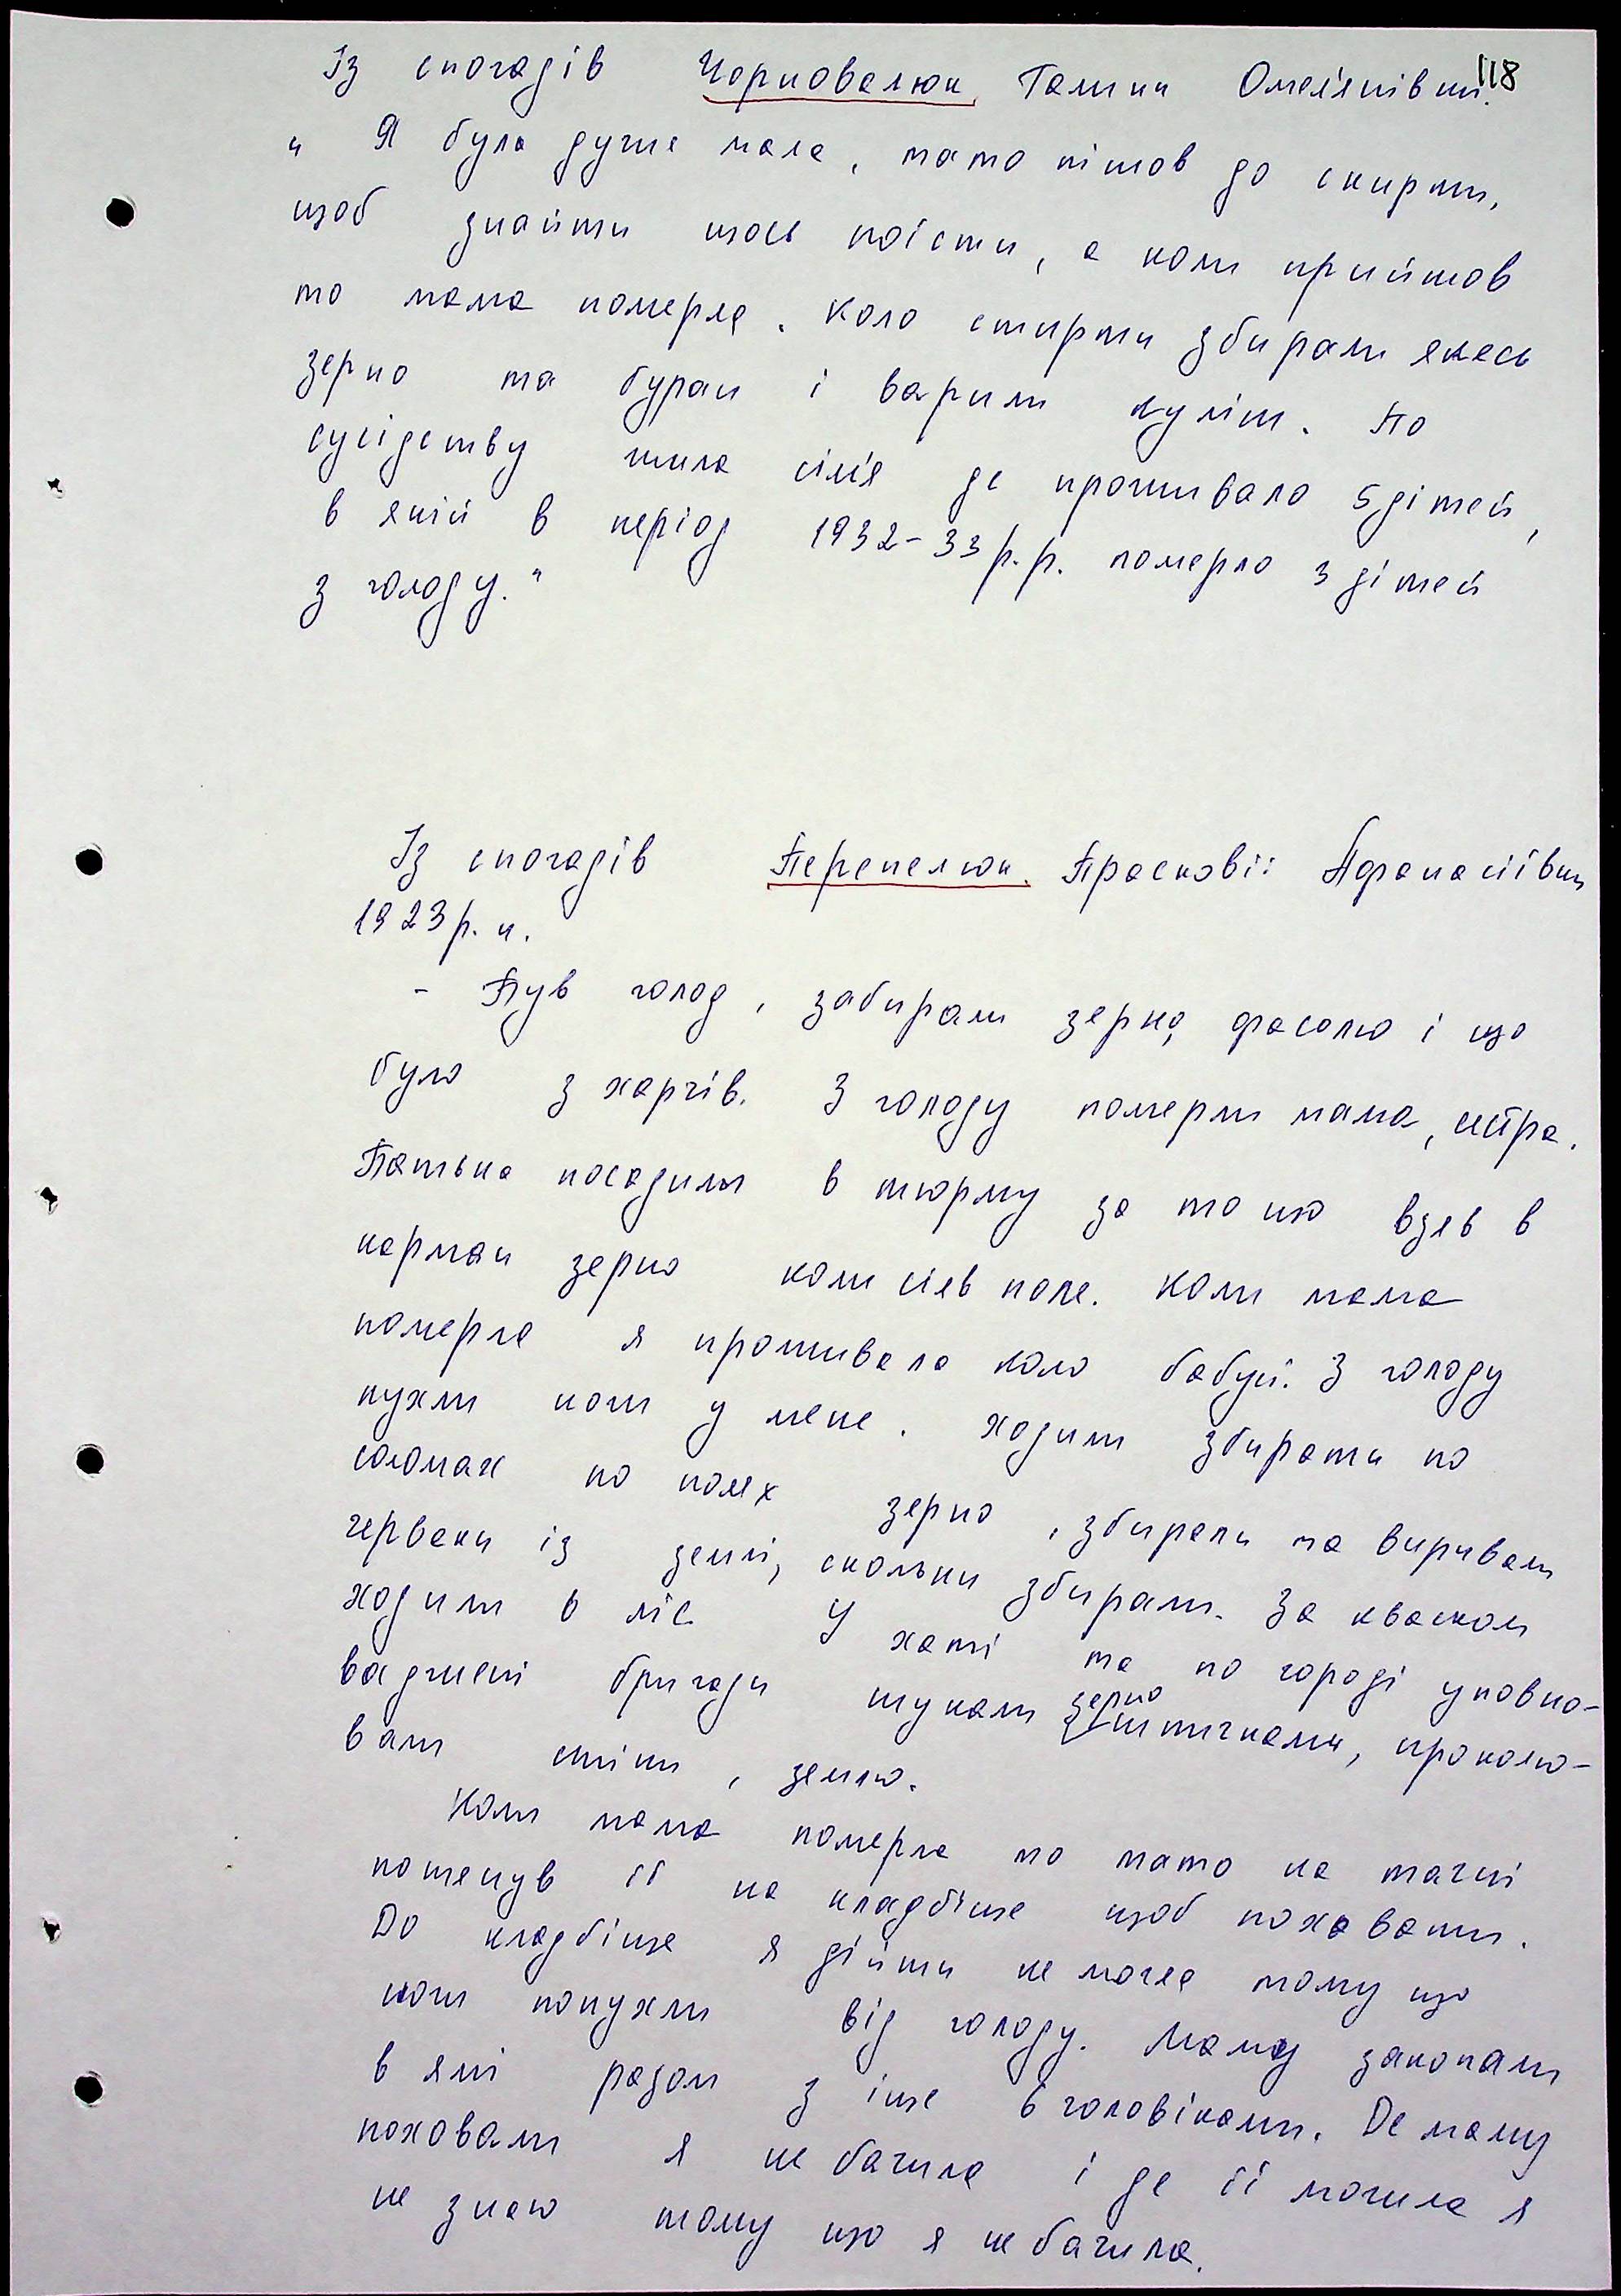 118
Із спогадів Чорновалюк Галини Омелянівни.
" Я була дуже мала, тато пішов до скирти,
щоб знайти щось поїсти, а коли прийшов
то мама померла. Коло стирти збирали якесь
зерно та бурак і варили куліш. По
сусідству жила сім'я де проживало 5 дітей,
в якій в період 1932-33 р.р. померло 3 дітей
з голоду."
Із спогадів Перепелюк Прасковії Афанасіївни
1923 р. н.
- Був голод, забирали зерно, фасолю і що
було з харчів. З голоду померли мама, сестра.
Батька посадили в тюрму за то що взяв в
карман зерно коли сіяв поле. Коли мама
померла я проживала коло бабусі. З голоду
пухли ноги у мене. Ходили збирати по
соломах по полях зерно, збирали та виривали
червяки із землі, скольки збирали. За кваском
ходили в ліс. У хаті та по городі уповно-
важнені бригади шукали зерно штичками, проколю-
вали стіни, землю.
Коли мама померла то тато на тачці
потягнув її на кладбіще щоб поховати.
До кладбіща я дійти не могла тому що
ноги попухли від голоду. Маму закопали
в ямі разом з іще 6 чоловіками. Де маму
поховали я не бачила і де її могила я
не знаю тому що я не бачила.